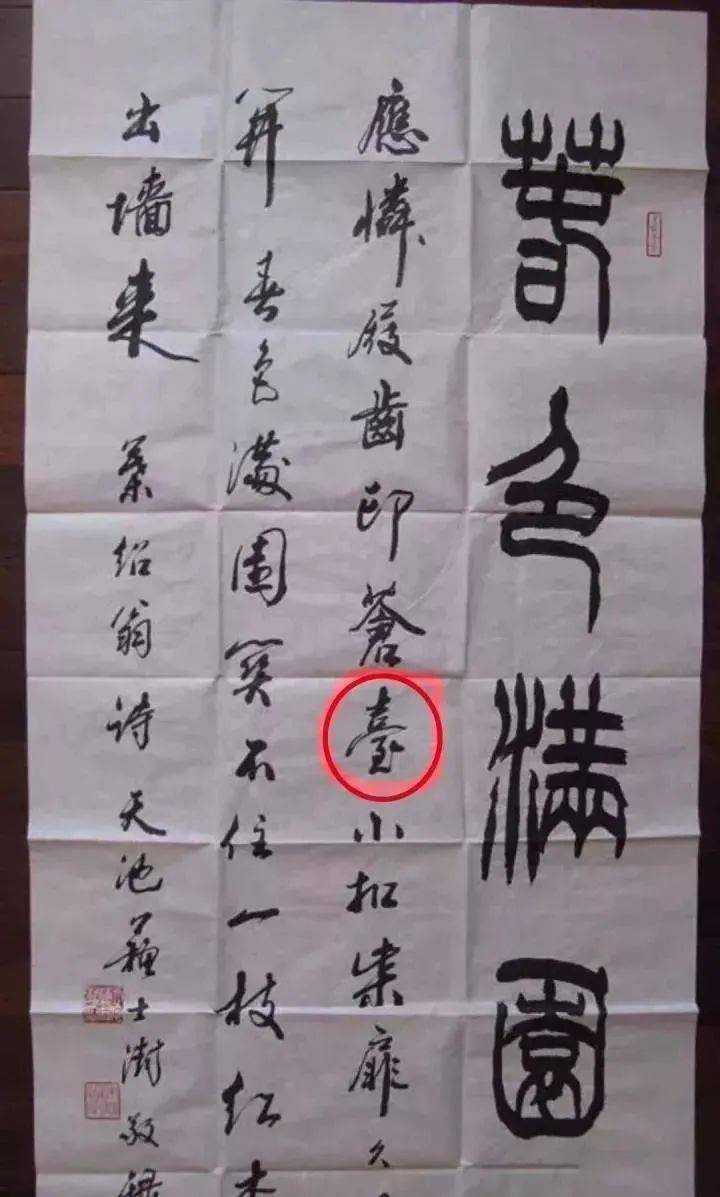 春色滿園
應憐屐齒印蒼臺小扣柴扉久
開春色滿園關不住一枝紅杏
出墻來 葉紹翁詩 天池蘇士澍敬錄